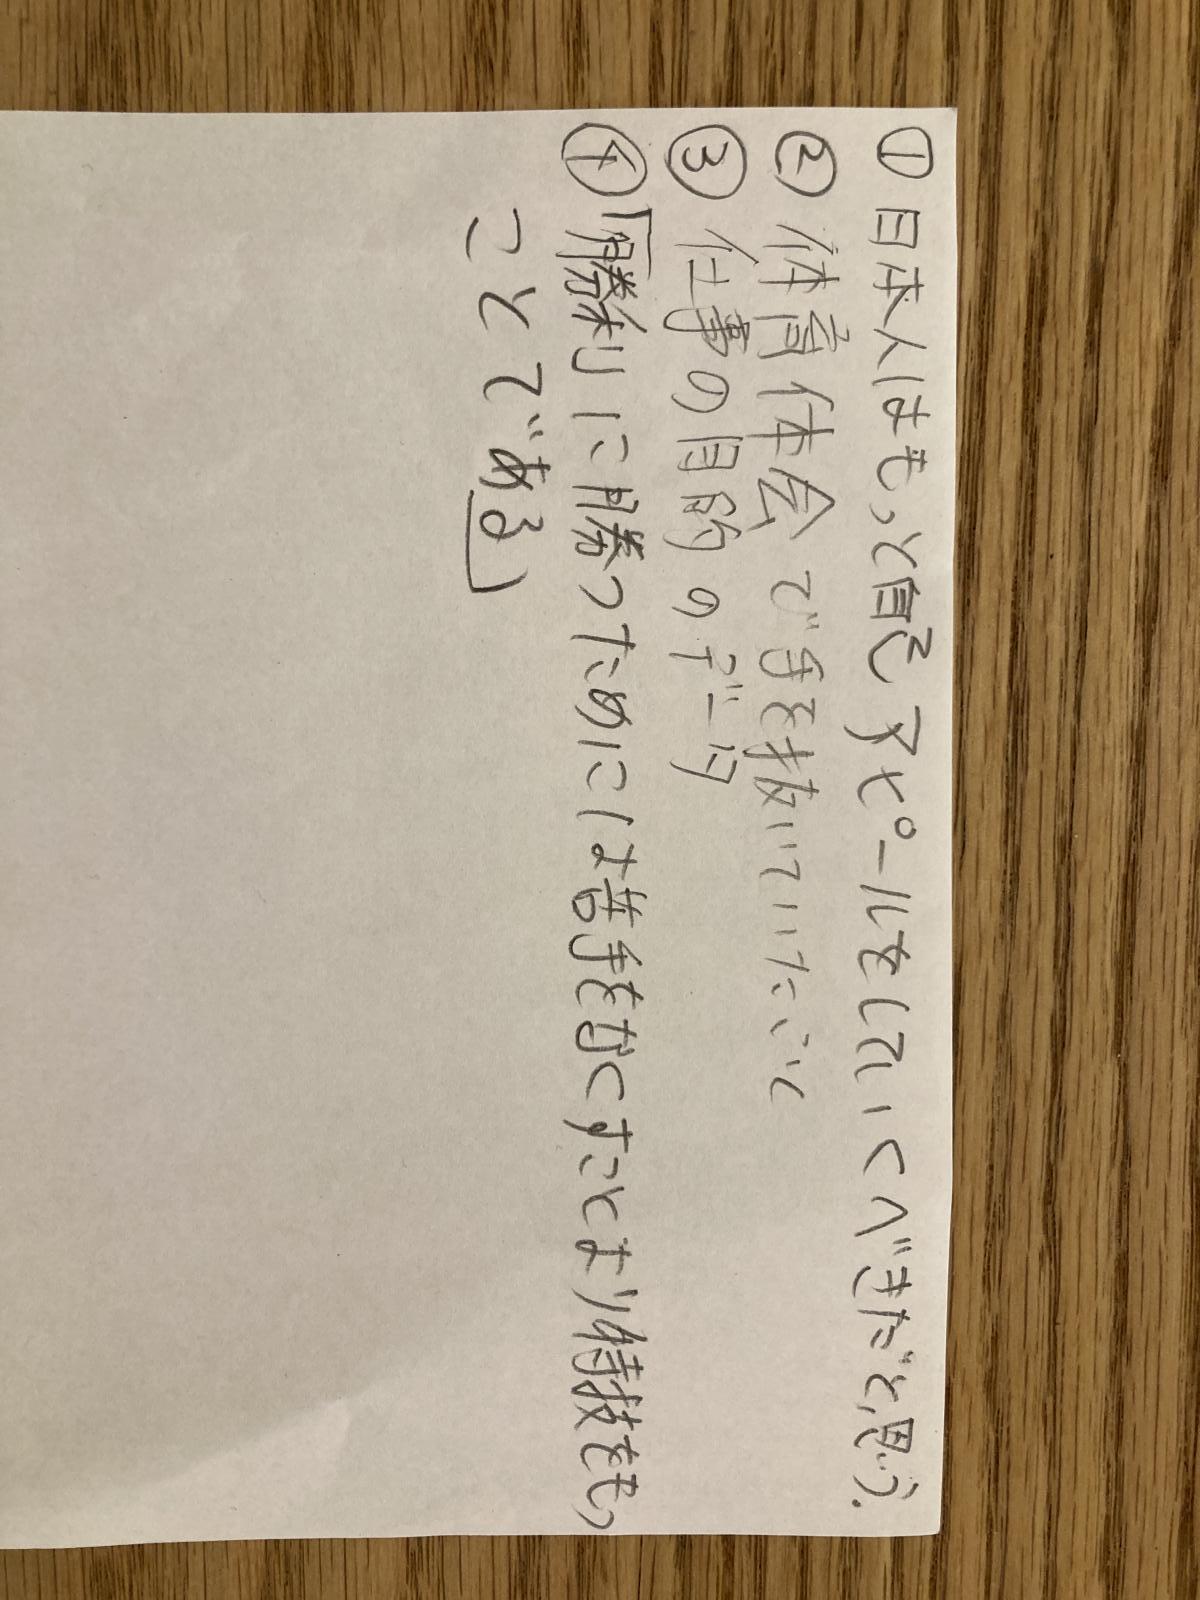 ① 日本人はもっと自己アピールをしていくべきだと思う.
② 体育体会で手を抜いていたこと
③ 仕事の目的のデータ
④ 「勝利に勝つためには苦手をなくすことより特技をもつ
ことである」